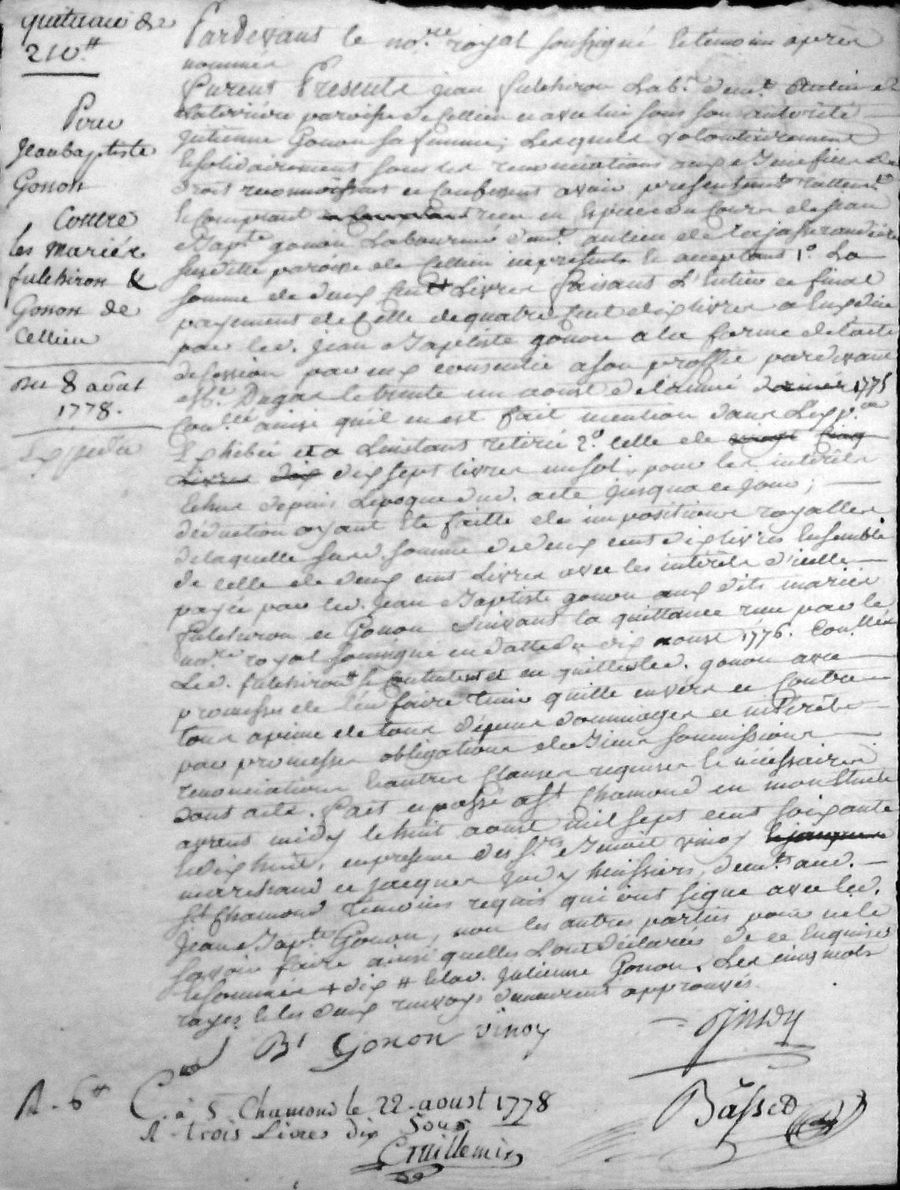 quittance de
210tt
Pour
Jean baptiste
Gonon
Contre
les mariés
fulchiron &
Gonon de
Cellieu
du 8 août
1778.
Expedié
Pardevant le nore royal soussigné & témoins après
nommés
furent Presents Jean fulchiron Labr. demt.
paroisse de Cellieu et avec lui sous son autorité
Julienne Gonon sa femme, Lesquels volontairement
& solidairement sous les renonciations
droit reconnoissent et confessent avoir présentement
& comptant en Espèces du Cours de Jean
Bapte gonon Laboureur demt. au lieu de la jassrandière
susditte paroisse de Cellieu icy présent & acceptant 1o. La
somme de deux cent Livres faisant L'Entier et final
payement de Celle de quatre cent dix livres a Eux due
par led. Jean Baptiste gonon a la forme de l'acte
de cession par eux consentie a son proffit pardevant
Me. Dugas le trente un aoust de l'année 1775
Conllé ainsi qu'il en est fait mention dans L'exp.on
Exhibée et a Linstant retirée 2o. celle de vingt cinq
Livres dix dix sept livres un sol, pour les intérêts
depuis L'epoque dud. acte jusqua ce jour;
déduction ayant été faitte des impositions royalles
de laquelle susd. somme de deux cent dix livres Ensemble
de celle de deux cent Livres avec les intérêts d'icelle
payée par led. Jean Baptiste gonon aux dits mariés
fulchiron et Gonon suivant la quittance reçue par le
nore royal soussigné en datte du dix aoust 1776. Conllée
Led. fulchiron se contentent et en quittent led. gonon avec
promesse de l'en faire tenir quitte envers et contre
tous a peine de tous dépens dommages et intérêts
par promesses obligations de Biens soumissions
renonciations & autres Clauses requises & nécessaires
dont acte. Fait et passé a St Chamond en mon Etude
avant midy le huit aoust mil sept cent soixante
& dix huit, en presence des Srs Benoit vinoy
marchand et jacques huissier, demts. aud.
St Chamond témoins requis qui ont signé avec led.
Jean Bapte Gonon, non les autres parties pour ne le
savoir faire ainsi quelles L'ont déclarées de ce Enquises
& sommées + dix # & lad. Julienne Gonon. Les cinq mots
rayés & les deux renvoys demeurent approuvés.
J Bt Gonon vinoy
Basset
R - 6tt C. à S Chamond le 22 aoust 1778
R - trois Livres dix Sous
Cruillemin